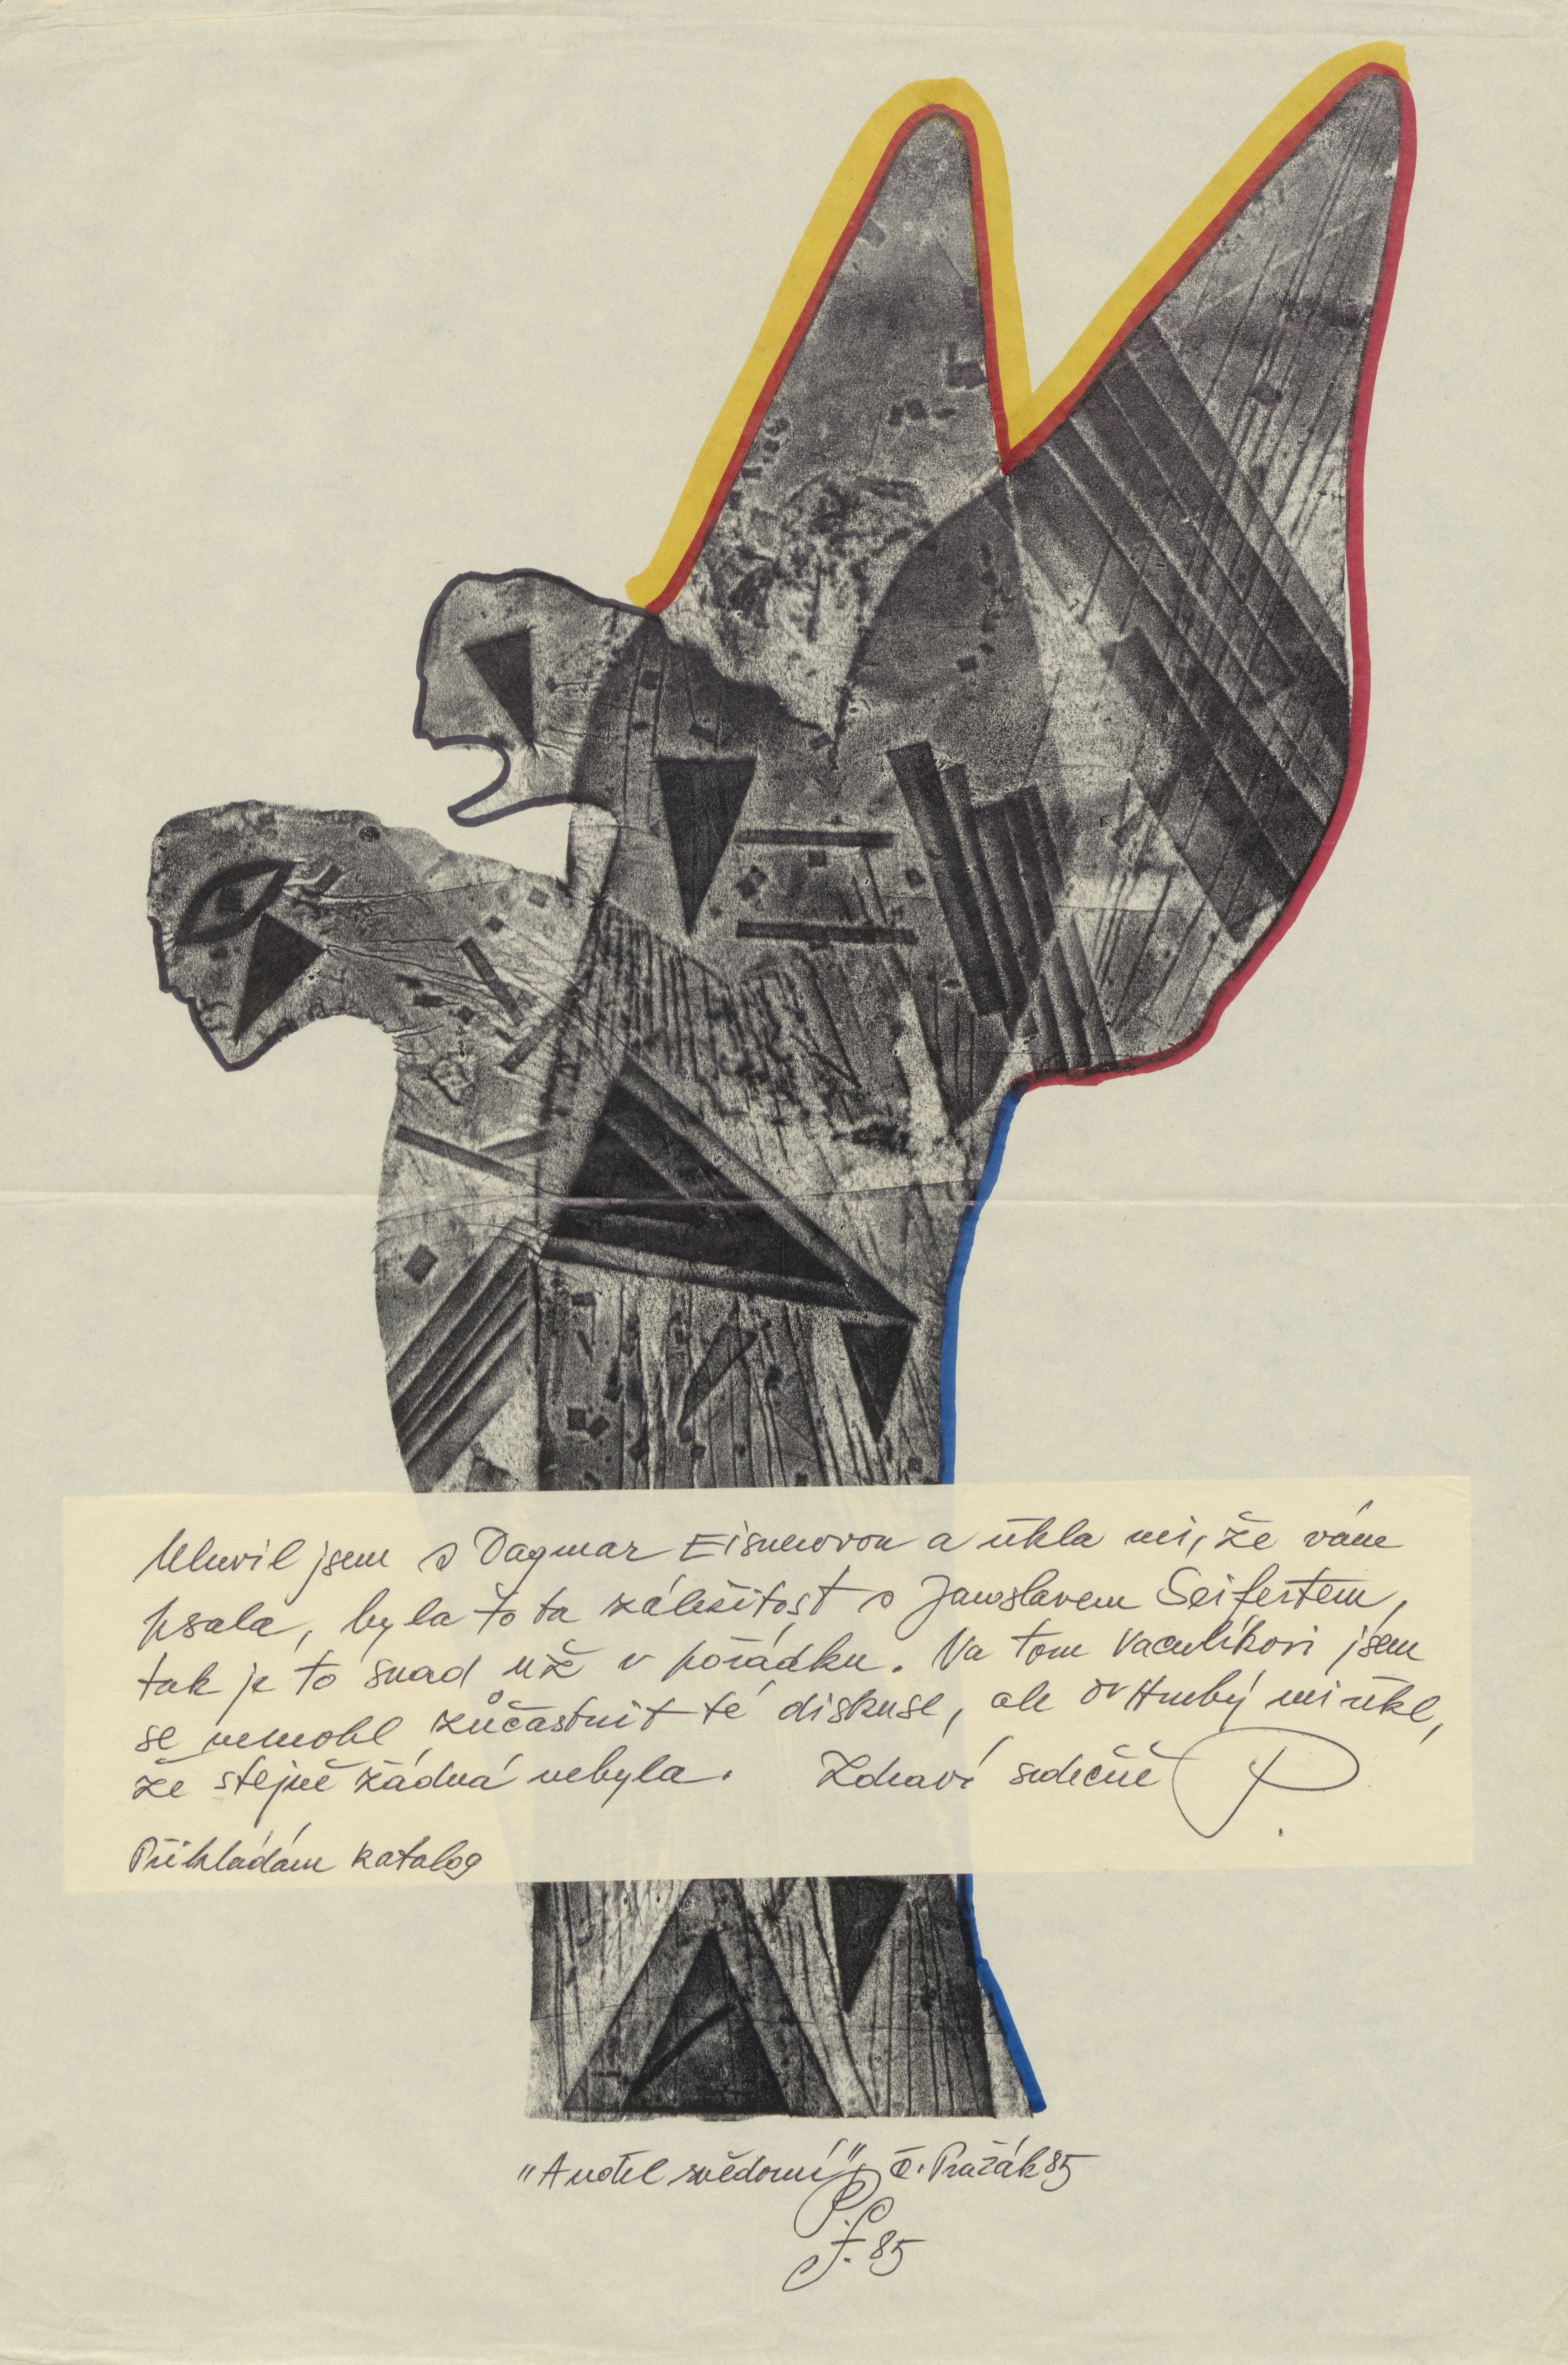 Mluvil jsem s Dagmar Eisnerovou a řikla mi, že vám
psala, byla to ta záležitost s Jaroslavem Seifertem,
tak je to snad už v pořádku. Na tom Vaculíkovi jsem
se nemohl zůčastnit té diskuse, ale Dr Hrubý mi řikl,
že stejně žádná nebyla. Zdraví srdečně P.
Přikládám katalog
"Anděl svědomí", Č. Pražák 85
P.f. 85